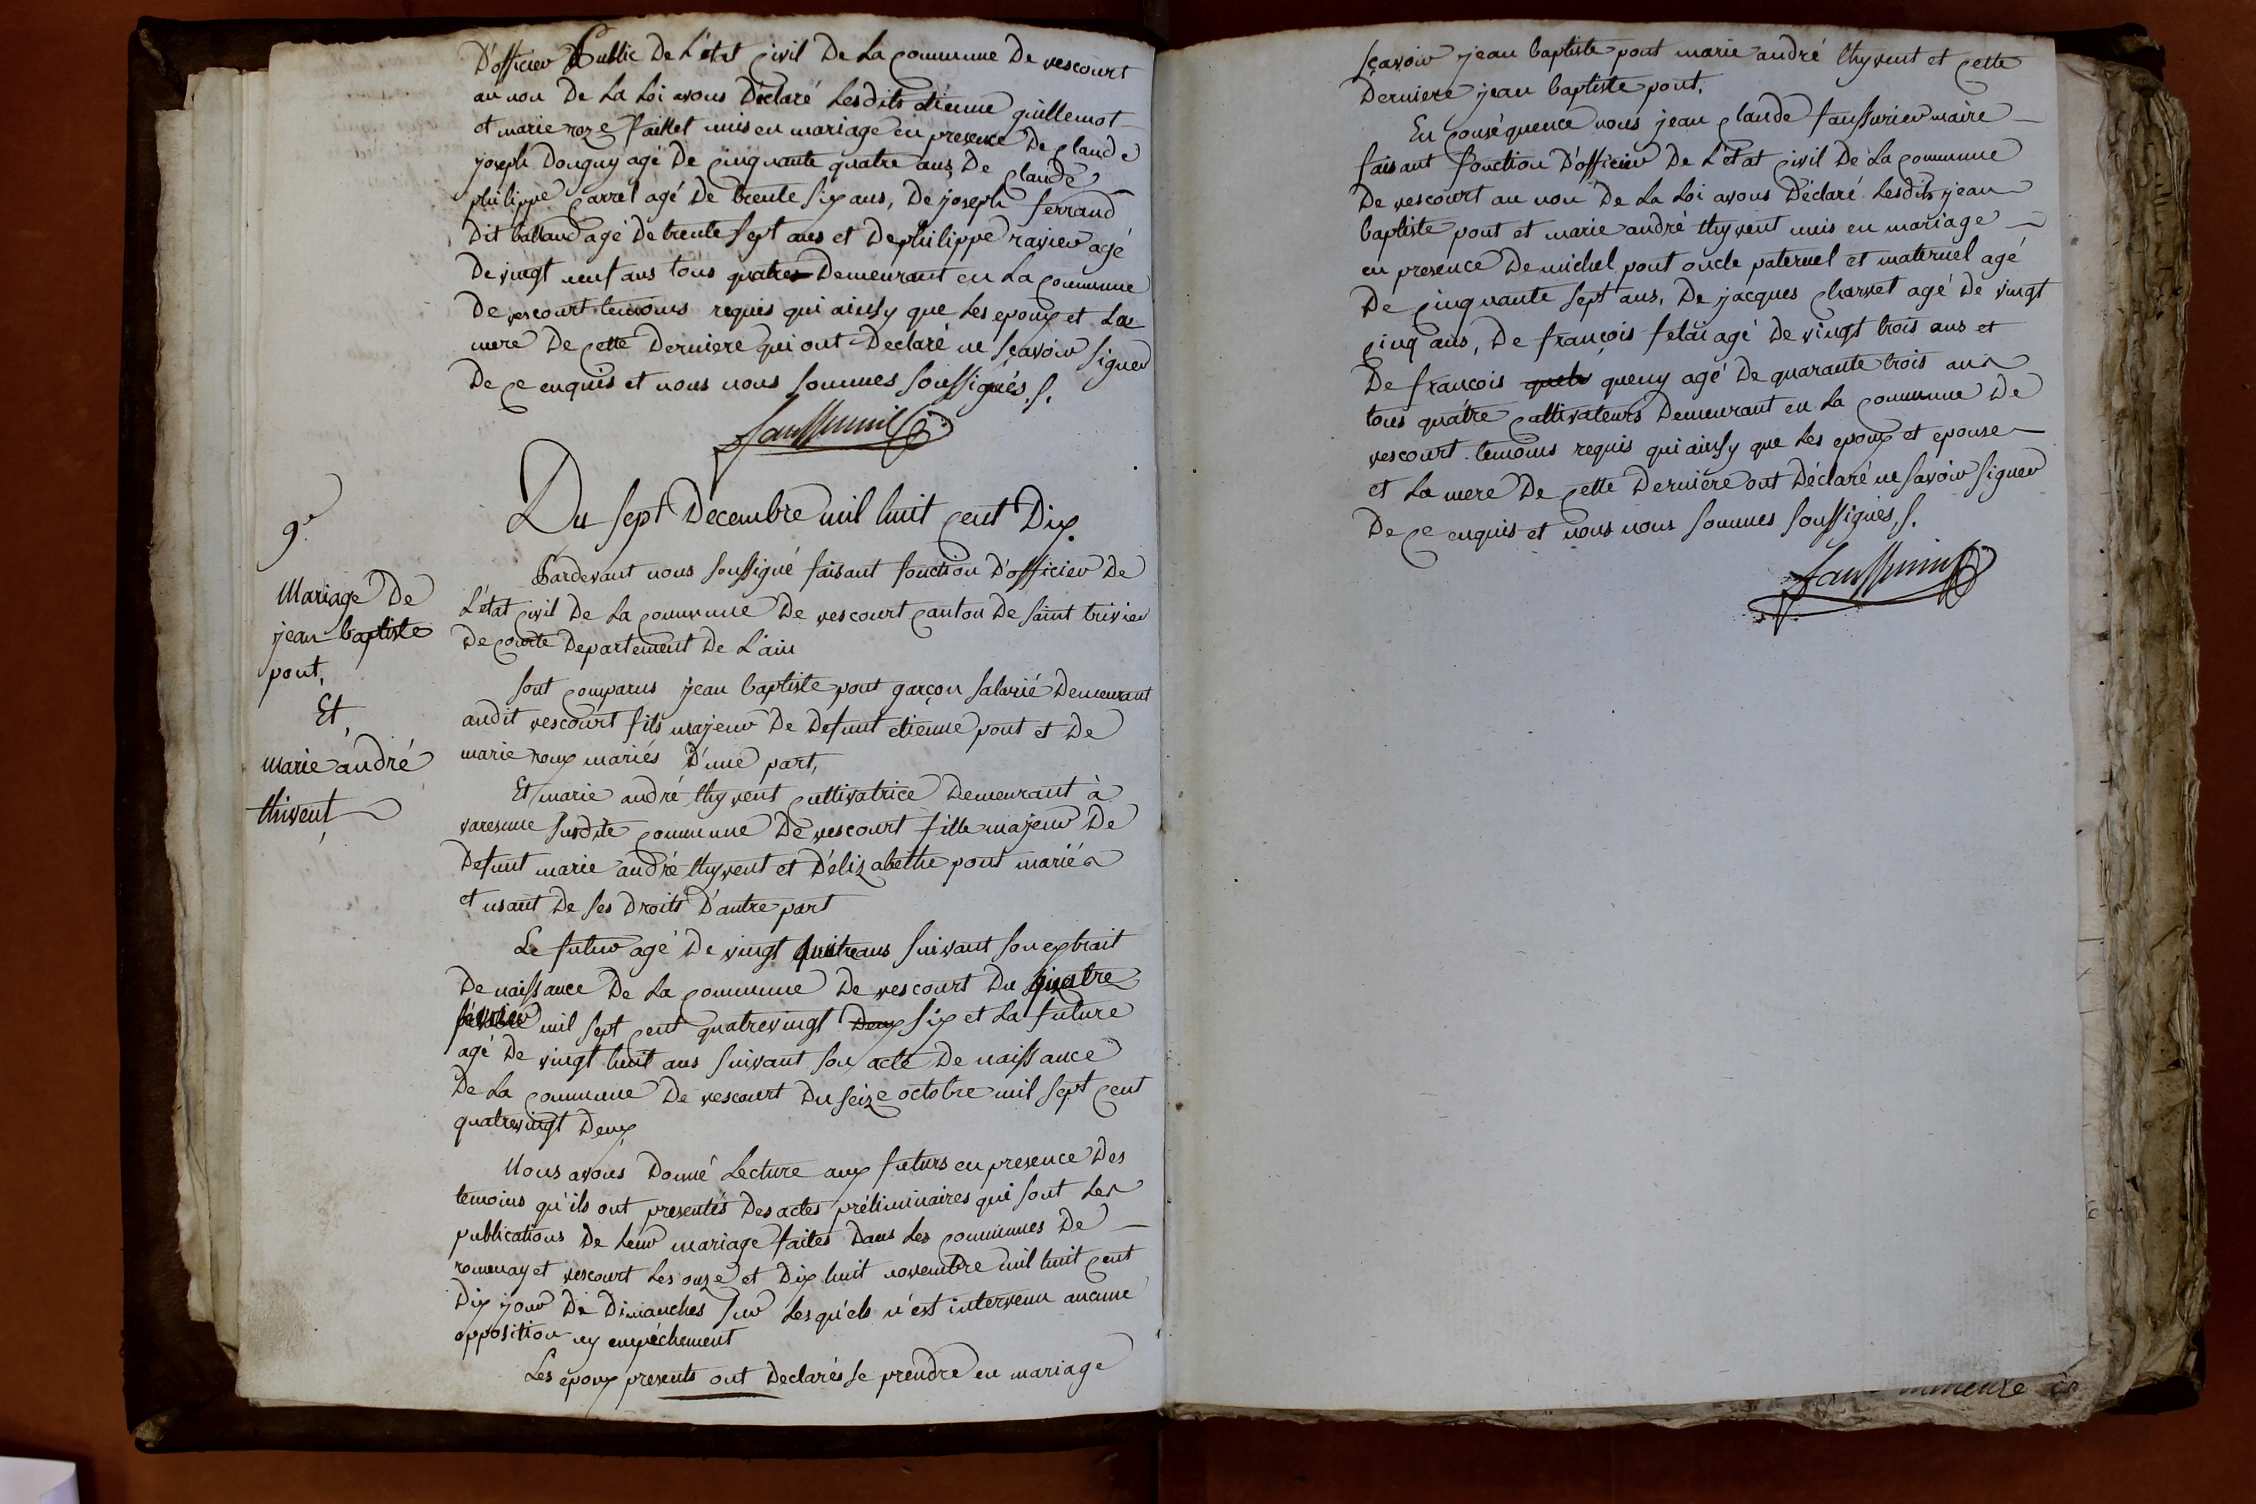 D'officier Public De L'état Civil De La Commune De vescourt
au non De La Loi avons Déclaré Lesdits étienne guillemot
et marie roze paillet unis en mariage en presence De Claude
joseph Donguy agé De Cinquante quatre ans, De Claude
philippe Carrel agé De trente six ans, De joseph ferrand
Dit balland agé De trente sept ans et De philippe ravier agé
De vingt neuf ans tous quatres Demeurant en La Commune
De vescourt temoins requis qui ainsy que Les epoux et La
mere De Cette Derniere qui ont Declaré ne sçavoir signer
De Ce enquis et nous nous sommes soussignés ./.
9e
Mariage De
jean baptiste
pont,
Et
marie andré
thivent
Du sept Decembre mil huit Cent Dix.
Pardevant nous soussigné faisant fonction D'officier De
L'état Civil De La Commune De vescourt Canton De saint trivier
De Courte Departement De L'ain
sont Comparus jean baptiste pont garçon salarié Demeurant
audit vescourt fils majeur De Defunt etienne pont et De
marie roux mariés D'une part,
Et marie andré thyvent Cultivatrice Demeurant à
varesnne susdite Commune De vescourt fille majeur De
Defunt marie andré thyvent et D'élizabethe pont mariés
et usant De ses Droits D'autre part
Le futur agé De vingt quatre ans suivant son extrait
De naissance De La Commune De vescourt Du quatre
février mil sept Cent quatrevingt Deux six et La future
agé De vingt huit ans suivant son acte De naissance
De La Commune De vescourt Du seize octobre mil sept Cent
quatrevingt Deux
Nous avons Donné Lecture aux futurs en presence Des
temoins qu'ils ont presentés Des actes préliminaires qui sont Les
publications De Leur mariage faites Dans Les Communes De
romenay et vescourt Les onze et Dix huit novembre mil huit Cent
Dix jour De Dimanches sur Lesqu'els n'est intervenu aucune
opposition ny empéchement
Les époux presents ont Declarés se prendre en mariage
sçavoir jean baptiste pont marie andré thyvent et Cette
Derniere jean baptiste pont.
En Conséquence nous jean Claude faussurier maire
faisant fonction D'officier De L'état Civil De La Commune
De vescourt au non De La Loi avons Déclaré Lesdits jean
baptiste pont et marie andré thyvent unis en mariage
en presence De michel pont oncle paternel et maternel agé
De Cinquante sept ans, De jacques Charvet agé De vingt
Cinq ans, De françois felai agé De vingt trois ans et
De françois queny agé De quarante trois ans
tous quatre Cultivateurs Demeurant en La Commune De
vescourt temoins requis qui ainsy que Les epoux et epouse
et La mere De Cette Derniere ont Déclaré ne savoir signer
De Ce enquis et nous nous sommes soussignés ./.